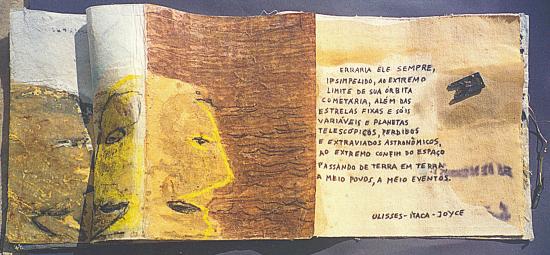 ERRARIA ELE SEMPRE,
IPSIMPELIDO, AO EXTREMO
LIMITE DE SUA ÓRBITA
COMETÁRIA, ALÉM DAS
ESTRELAS FIXAS E SÓIS
VARIÁVEIS E PLANETAS
TELESCÓPICOS, PERDIDOS
E EXTRAVIADOS ASTRONÔMICOS,
AO EXTREMO CONFIM DO ESPAÇO
PASSANDO DE TERRA EM TERRA
A MEIO POVOS, A MEIO EVENTOS.
ULISSES-ÍTACA-JOYCE